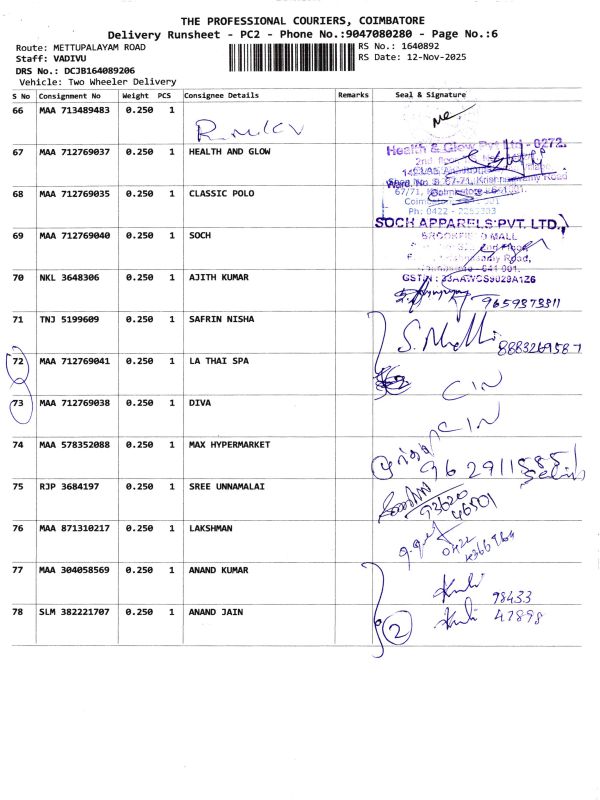 THE PROFESSIONAL COURIERS, COIMBATORE
Delivery Runsheet - PC2 - Phone No.:9047080280 - Page No.:6
Route: METTUPALAYAM ROAD
Staff: VADIVU
DRS No.: DCJB164089206
Vehicle: Two Wheeler Delivery
RS No.: 1640892
RS Date: 12-Nov-2025
S No Consignment No Weight PCS Consignee Details Remarks Seal & Signature
66 MAA 713489483 0.250 1
67 MAA 712769037 0.250 1 HEALTH AND GLOW
Health & Glow Pvt Ltd - 0272.
68 MAA 712769035 0.250 1 CLASSIC POLO
Ph: 0422 - 2252303
69 MAA 712769040 0.250 1 SOCH
SOCH APPARELS PVT. LTD.,
70 NKL 3648306 0.250 1 AJITH KUMAR
9659373311
71 TNJ 5199609 0.250 1 SAFRIN NISHA
8883269587
72 MAA 712769041 0.250 1 LA THAI SPA
CIN
73 MAA 712769038 0.250 1 DIVA
CIN
74 MAA 578352088 0.250 1 MAX HYPERMARKET
75 RJP 3684197 0.250 1 SREE UNNAMALAI
93620
46501
76 MAA 871310217 0.250 1 LAKSHMAN
0422
77 MAA 304058569 0.250 1 ANAND KUMAR
98433
78 SLM 382221707 0.250 1 ANAND JAIN
2
47898